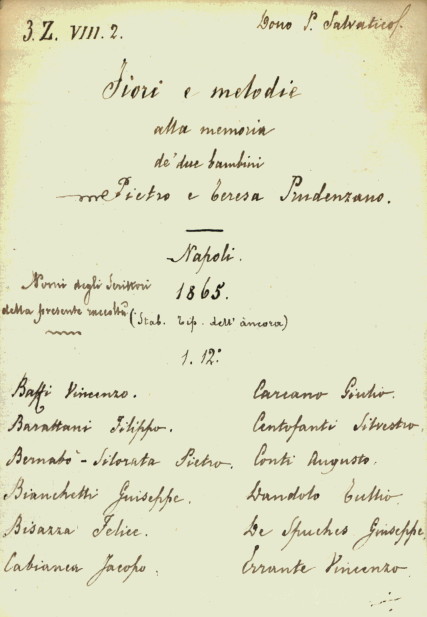 3. Z. VIII. 2.
Dono P. Salvatico
Fiori e melodie
alla memoria
de' due bambini
Pietro e Teresa Prudenzano.
Napoli.
1865.
Nomi degli Scrittori
della presente raccolta
(Stab. Tip. dell' àncora)
1. 12º
Baffi Vincenzo.
Barattani Filippo.
Bernabò-Silorata Pietro.
Bianchetti Guiseppe.
Bisazza Felice.
Cabianca Jacopo.
Carcano Giulio.
Centofanti Silvestro.
Conti Augusto.
Dandolo Tullio.
De Spuches Giuseppe
Errante Vincenzo